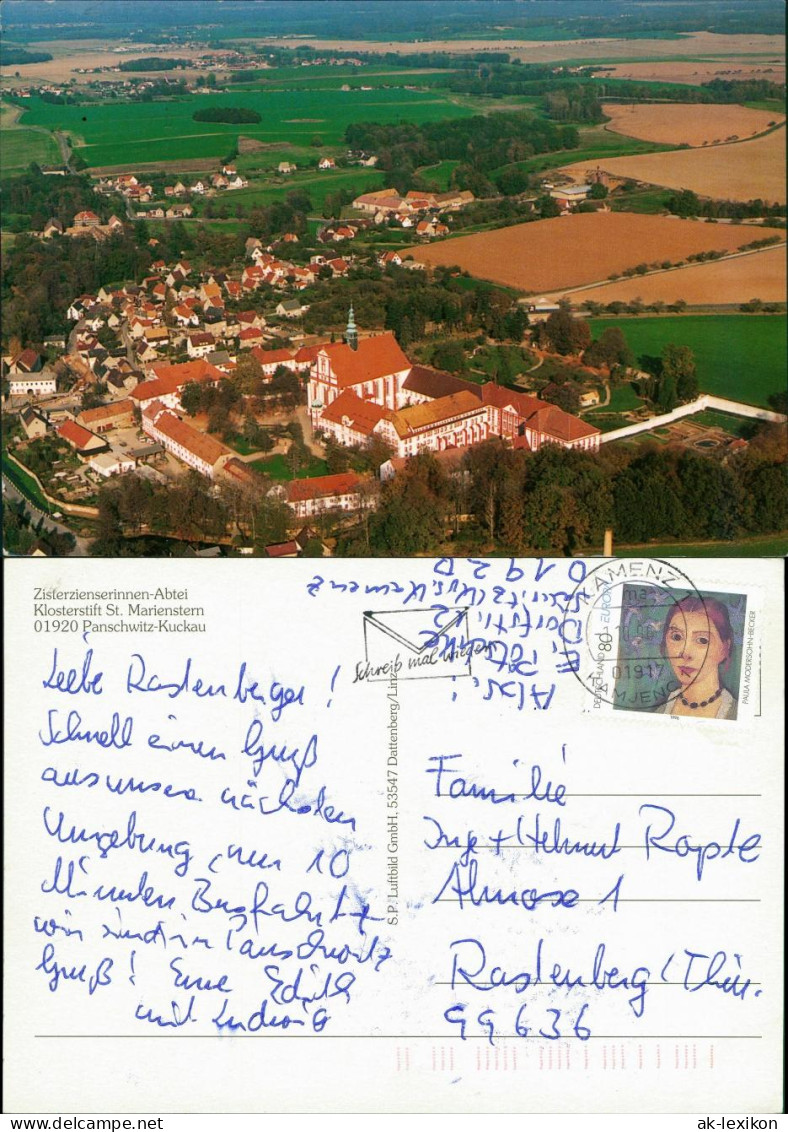 Zisterzienserinnen-Abtei
Klosterstift St. Marienstern
01920 Panschwitz-Kuckau
Liebe Rastenberger!
Schnell einen Gruß
aus unserer nächsten
Umgebung, nur 10
Minuten Busfahrt +
wir sind in Panschwitz
Gruß! Eure Edith
mit Ludwig
S.P. Luftbild GmbH, 53547 Dattenberg/Linz
Schreib mal wieder
Abs.:
E.
Dorfstr. 2
01920
KAMENZ
01917
KAMJENC
DEUTSCHLAND 80 EUROPA
PAULA MODERSOHN-BECKER
Familie
Inge + Helmut Rapte
Almose 1
Rastenberg (Thür.
99636
delcampe.net
ak-lexikon